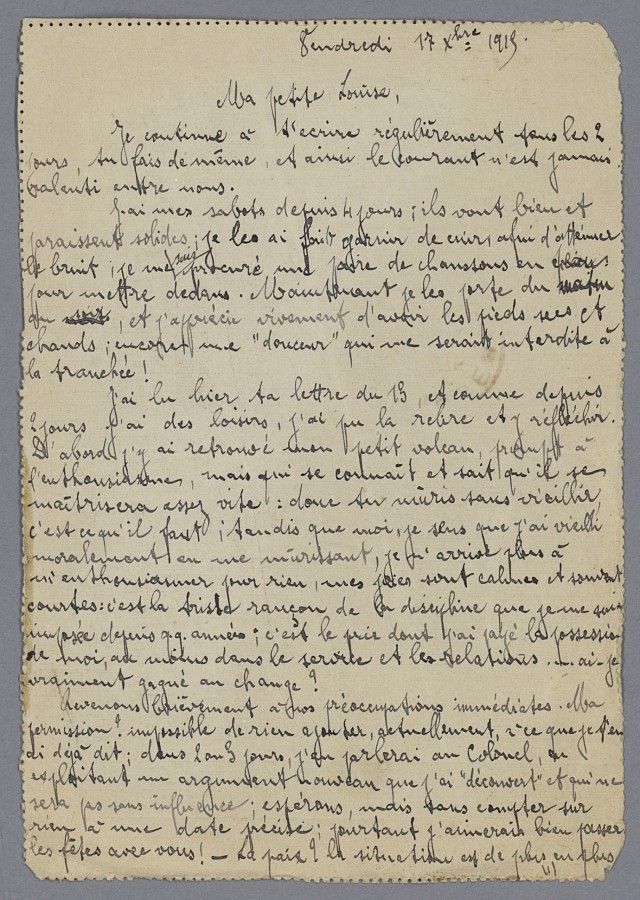 Vendredi 17 Xbre 1915.
Ma petite Louise,
Je continue à t'ecrire régulièrement tous les 2
jours, tu fais de même, et ainsi le courant n'est jamais
ralenti entre nous.
J'ai mes sabots depuis 4 jours ; ils vont bien et
paraissent solides ; je les ai fait garnir de cuir, afin d'atténuer
le bruit ; je me suis procuré une paire de chaussons en
pour mettre dedans. Maintenant je les porte du matin
au soir, et j'apprécie vivement d'avoir les pieds secs et
chauds ; encore une "douceur" qui me serait interdite à
la tranchée !
J'ai lu hier ta lettre du 13, et comme depuis
2 jours j'ai des loisirs, j'ai pu la relire et y réfléchir.
D'abord j'y ai retrouvé mon petit volcan, prompt à
l'enthousiasme, mais qui se connaît et sait qu'il se
maîtrisera assez vite : donc tu mûris sans vieillir
c'est ce qu'il faut ; tandis que moi, je sens que j'ai vieilli
moralement en me mûrissant, je n'arrive plus à
m'enthousiasmer pour rien, mes joies sont calmes et souvent
courtes : c'est la triste rançon de la discipline que je me suis
imposée depuis qq. années ; c'est le prix dont j'ai payé la possession
de moi, au moins dans le service et les relations .... ai-je
vraiment gagné au change ?
Revenons brièvement à nos préoccupations immédiates. Ma
permission ? impossible de rien ajouter, actuellement, à ce que je t'en
ai déjà dit ; dans 2 ou 3 jours, j'en parlerai au Colonel, en
exploitant un argument nouveau que j'ai "découvert" et qui ne
sera pas sans influence ; espérons, mais sans compter sur
rien à une date précise ; pourtant j'aimerais bien passer
les fêtes avec vous ! — La paix ? la situation est de plus en plus